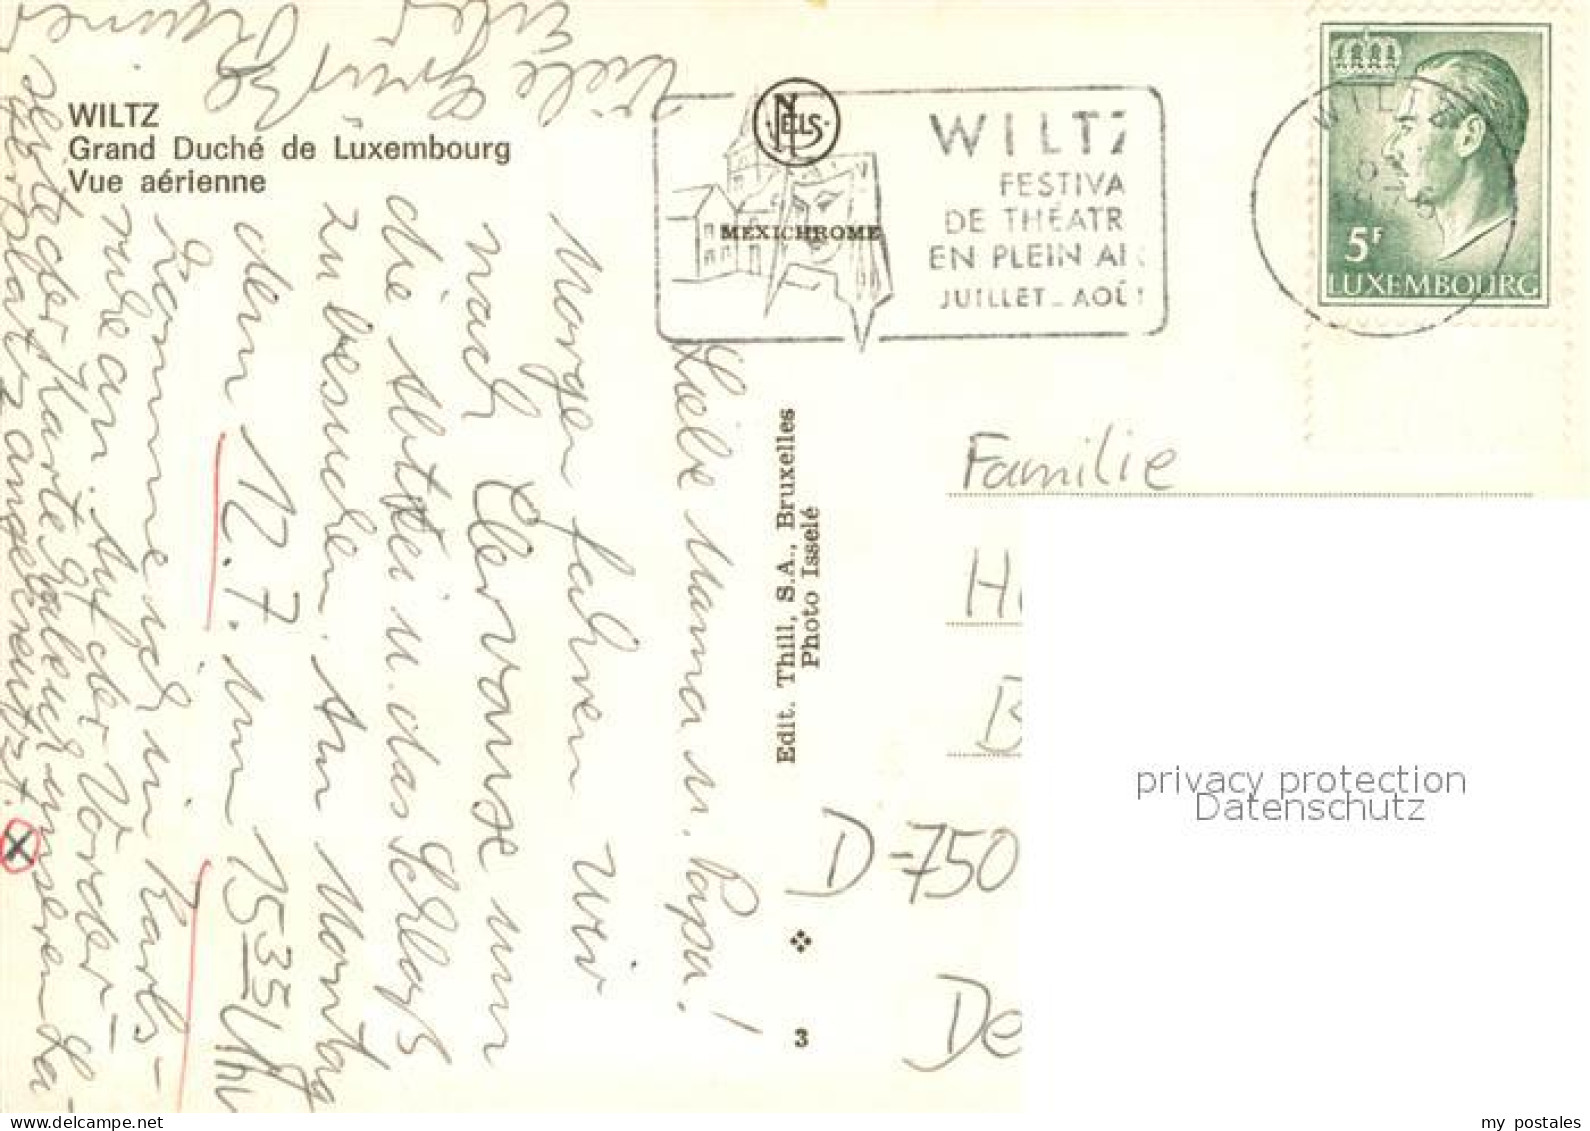 WILTZ
Grand Duché de Luxembourg
Vue aérienne
NELS
MEXICHROME
WILTZ
FESTIVA
DE THÉATR
EN PLEIN AI
JUILLET - AOÛT
WILTZ
5F
LUXEMBOURG
Edit. Thill, S.A., Bruxelles
Photo Isselé
3
Liebe Mama u. Papa!
Morgen fahren wir
nach Clervause um
die Abtei u. das Schloß
zu besuchen. Am Montag
dem 12.7. um 15 35 Uhr
komme ich in Karls-
ruhe an. Auf der Vorder-
seite der Karte
platz angekreuzt. X
Viele Grüße
Familie
H
B
D-750
De
privacy protection
Datenschutz
my postales